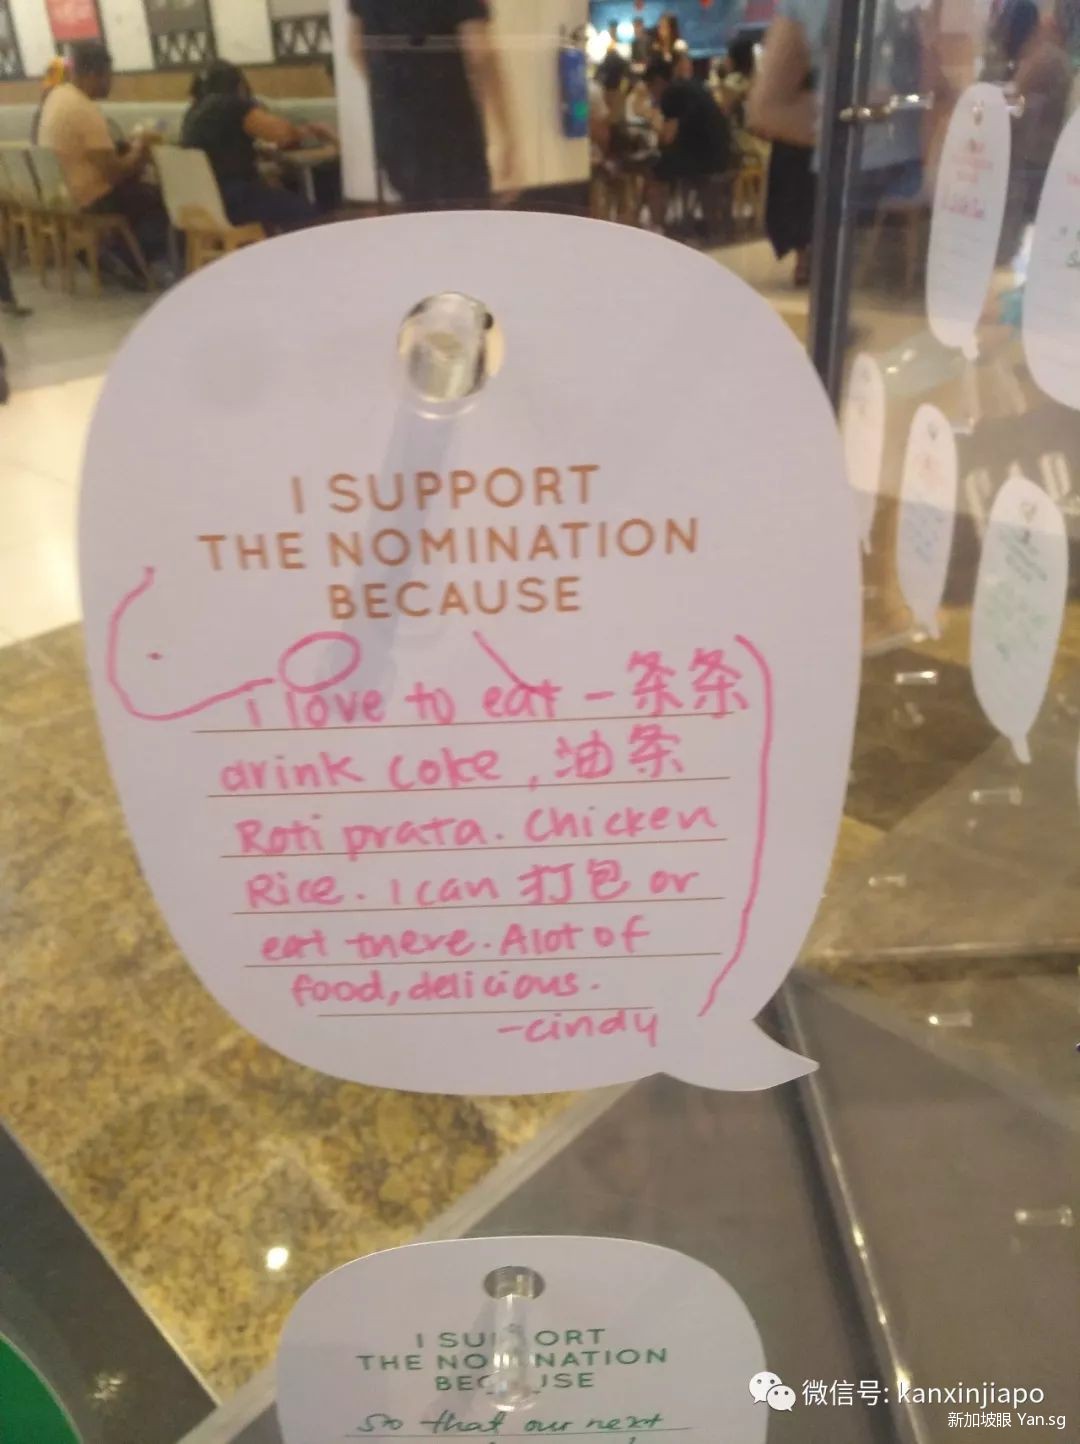 I SUPPORT
THE NOMINATION
BECAUSE
i love to eat - 条条
drink coke, 油条
Roti prata. Chicken
Rice. I can 打包 or
eat there. Alot of
food, delicious.
-cindy
I SUPPORT
THE NOMINATION
BECAUSE
So that our next
微信号: kanxinjiapo
新加坡眼 Yan.sg